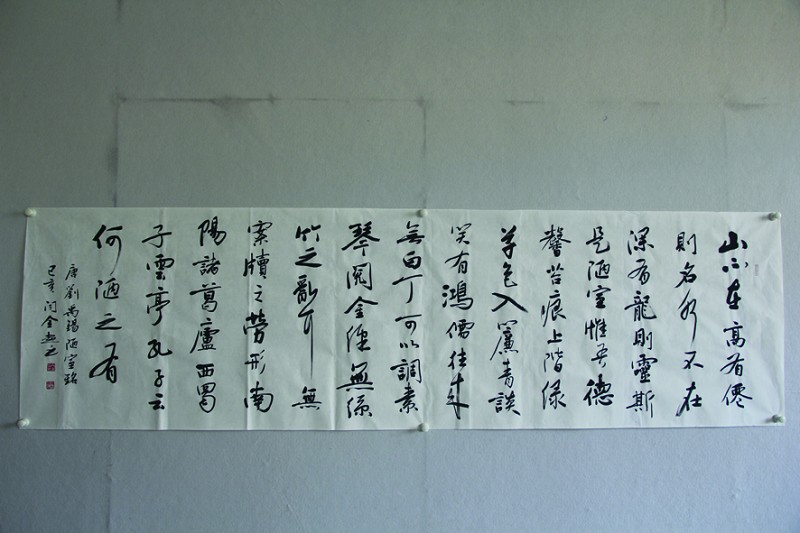 山不在高有僊
則名水不在
深有龍則靈斯
是陋室惟吾德
馨苔痕上階綠
草色入簾青談
笑有鴻儒往來
無白丁可以調素
琴閱金經無絲
竹之亂耳無
案牘之勞形南
陽諸葛廬西蜀
子雲亭孔子云
何陋之有
唐劉禹錫陋室銘
己亥闫金